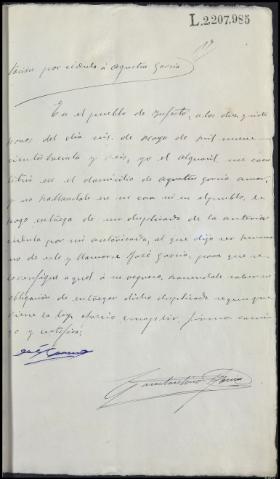 L.2.207.985
por cédula á Agustin Garcia
En el pueblo de Infiesto, a las diez y siete
horas del día seis de mayo de mil nueve-
cientos treinta y seis, yo el alguacil me cons-
tituí en el domicilio de Agustin Garcia
y no hallandole en su casa ni en el pueblo,
hago entrega de un duplicado de la anterior
cédula por mi autorizada, al que dijo ser herma-
no de este y llamarse José Garcia, para que
aquel á su regreso, haciendole saber
obligacion de entregar dicho duplicado segun
tiene la ley ofrecio cumplir, firma conmi-
go y certifico;
José Garcia